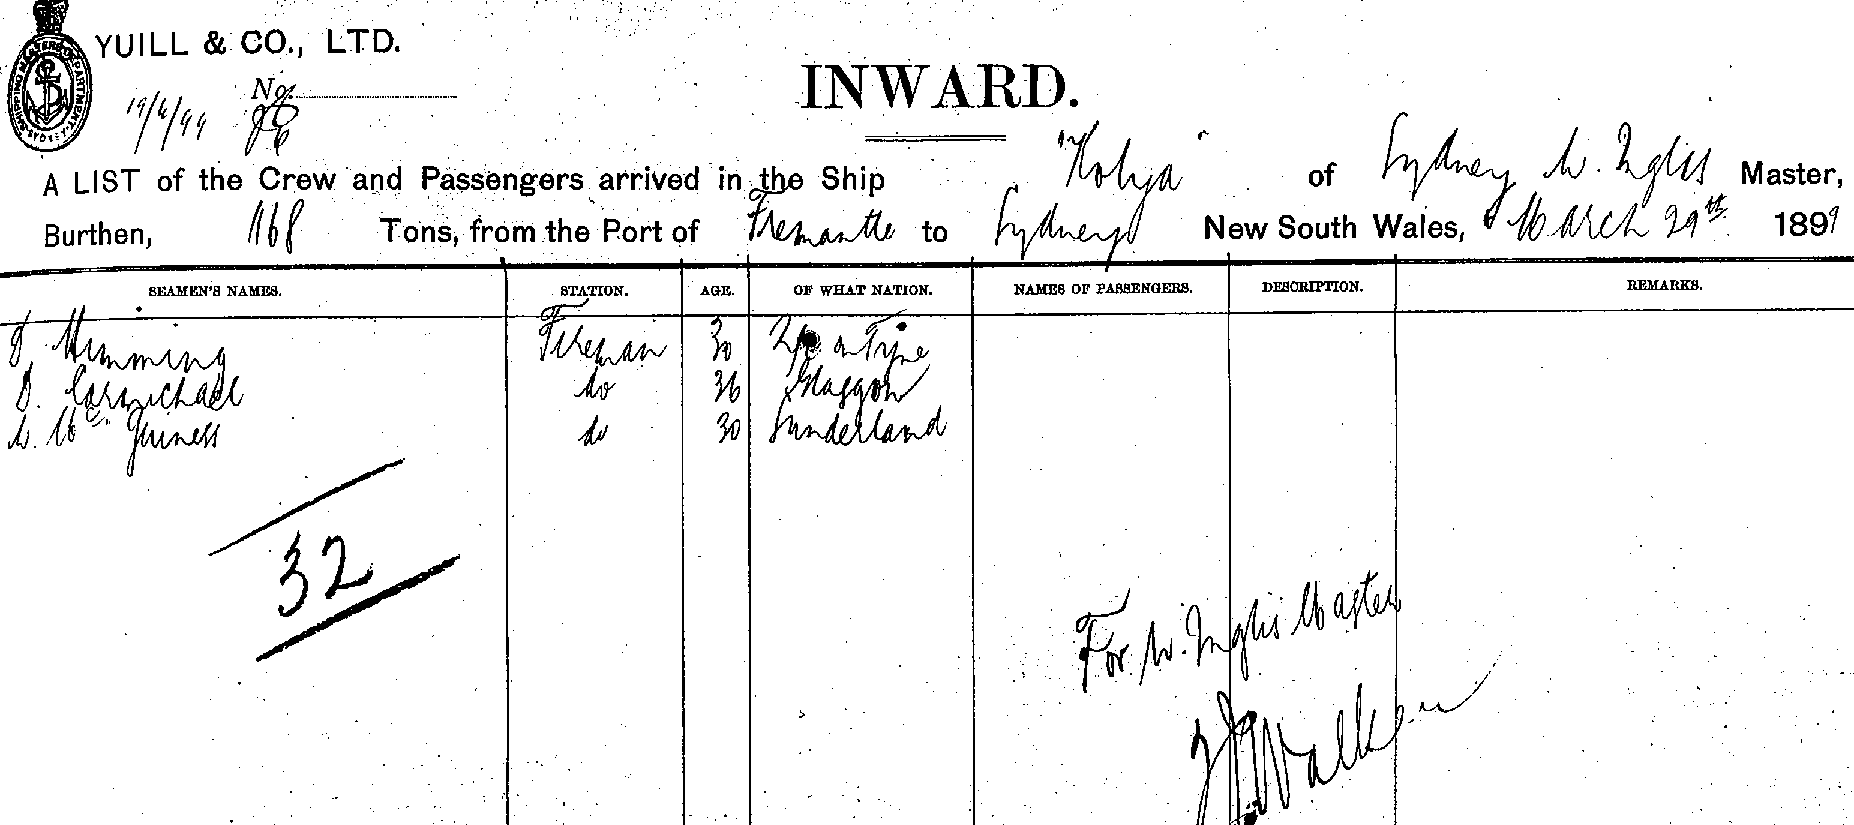 YUILL & CO., LTD.
19/4/99 No.
INWARD.
A LIST of the Crew and Passengers arrived in the Ship "Kolya" of Sydney W. Inglis Master,
Burthen, 1168 Tons, from the Port of Fremantle to Sydney New South Wales, March 29th 1899
SEAMEN'S NAMES. STATION. AGE. OF WHAT NATION. NAMES OF PASSENGERS. DESCRIPTION. REMARKS.
Fireman 30 on Tyne
D. Carmichael do 36 Glasgow
W. Mc. Guiness do 30 Sunderland
32
For W. Inglis Master
Walker